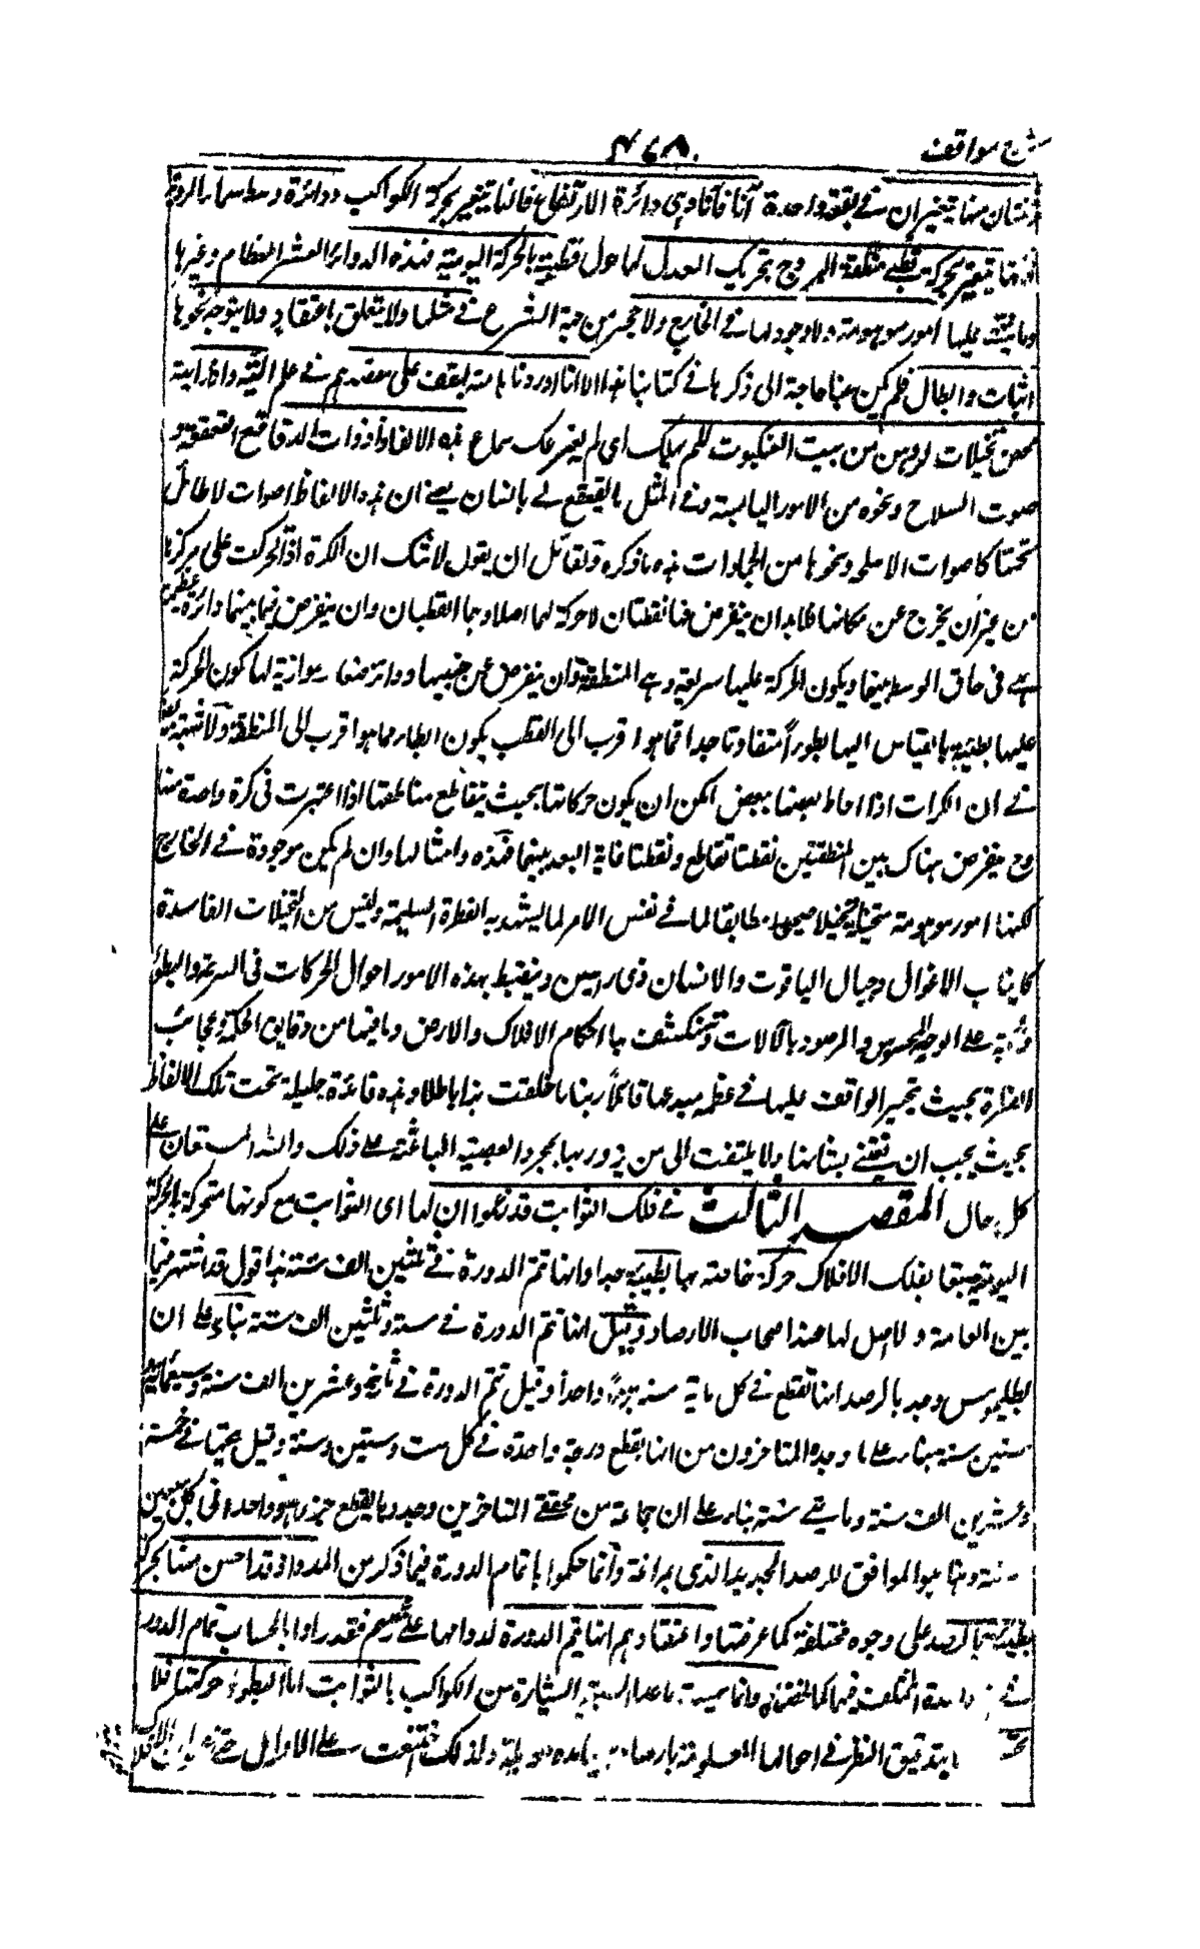 شرح مواقف
٤٦٨
واثنتان منها تتغيران في بقعة واحدة آنا فآنا وهي دائرة الارتفاع فانها تتغير بحركة الكواكب ودائرة وسط سماء الروية
فانها تتغير بحركة قطبي منطقة البروج بتحريك المعدل لها حول قطبيه بالحركة اليومية فهذه الدوائر العشر العظام وغيرها
وما يبتنى عليها امور موهومة ولا وجود لها في الخارج ولا حجر من جهة الشرع في مثلها ولا يتعلق باعتقاد ولا يتوجه نحوها
اثبات وابطال فلم يكن بنا حاجة الى ذكرها في كتابنا هذا الا انا اوردناها لتقف على مقصدهم في علم الهيئة وانه اذا رايته
محض تخيلات اوهن من بيت العنكبوت لم يهلك اي لم يفزعك سماع هذه الالفاظ ذوات القعاقع القعقعة
صوت السلاح ونحوه من الامور اليابسة وفي المثل ما يقعقع لي بالشنان يعني ان هذه الالفاظ اصوات لا طائل
تحتها كاصوات الاسلحة ونحوها من الجمادات هذا ما ذكره ولقائل ان يقول لا شك ان الكرة اذا تحركت على مركزها
من غير ان يخرج عن مكانها فلا بد ان ينفرض فيها نقطتان لا حركة لهما اصلا وهما القطبان وان ينفرض فيما بينهما دائرة عظيمة
هي في حاق الوسط بينهما ويكون الحركة عليها سريعة وهي المنطقة وان ينفرض عن جنبيها دوائر صغار موازية لها كون الحركة
عليها بطيئة بالقياس اليها بطوءا متفاوتا جدا فما هو اقرب الى القطب يكون ابطأ مما هو اقرب الى المنطقة ولا شبهة ايضا
في ان الكرات اذا احاط بعضها ببعض امكن ان يكون حركاتها بحيث يتقاطع مناطقها اذا اعتبرت في كرة واحدة منها
وح ينفرض هناك بين المنطقتين نقطتا تقاطع ونقطتا غاية البعد بينهما فهذه وامثالها وان لم يكن موجودة في الخارج
لكنها امور موهومة متخيلة تخيلا صحيحا مطابقا لما في نفس الامر لما يشهد به الفطرة السليمة وليس من التخيلات الفاسدة
كانياب الاغوال وجبال الياقوت والانسان ذي راسين وينضبط بهذه الامور احوال الحركات في السرعة والبطؤ
والجهة على الوجه المحسوس والمرصود بالآلات وتنكشف بها احكام الافلاك والارض وما فيها من دقايق الحكمة وعجائب
الفطرة بحيث تحير الواقف عليها في عظمة مبدعها قائلا ربنا ما خلقت هذا باطلا وهذه فائدة جليلة تحت تلك الالفاظ
بحيث يجب ان يعتنى بشانها ولا يلتفت الى من يزدريها بمجرد العصبية الباعثة على ذلك والله المستعان على
كل حال المقصد الثالث في فلك الثوابت قد زعموا ان لها اي الثوابت مع كونها متحركة بالحركة
اليومية تبعا بفلك الافلاك حركة خاصة بها بطيئة جدا وانها تتم الدورة في ثلثين الف سنة هذا قول قد اشتهر فيما
بين العامة ولا اصل لها عند اصحاب الارصاد وقيل انها تتم الدورة في ستة وثلثين الف سنة بناء على ان
بطليموس وجد بالرصد انها تقطع في كل مائة سنة جزءا واحدا وقيل تتم الدورة في ثلثة وعشرين الف سنة وسبعمائة
وستين سنة بناء على ما وجده المتاخرون من انها يقطع درجة واحدة في كل ست وستين سنة وقيل تتمها في خمسة
وعشرين الف سنة ومائتي سنة بناء على ان جماعة من محققي المتاخرين وجدوها يقطع جزءا واحدا في كل سبعين
سنة وهذا هو الموافق للرصد الجديد الذي بمراغة وانما حكموا باتمام الدورة فيما ذكر من المدد اذ قد احس منها بحركة
بطيئة بالرصد على وجوه مختلفة كما عرفتها واعتقادهم انها تتم الدورة لدوامها على زعمهم فقدروا بالحساب تمام الدور
في المدة المختلف فيها كما تحققته وانما سميت ما عدا السبعة السيارة من الكواكب بالثوابت اما لبطوء حركتها فلا
تحس الا بتدقيق النظر في احوالها المعلومة بارصاد مدة طويلة ولذلك اختفت على الاوائل